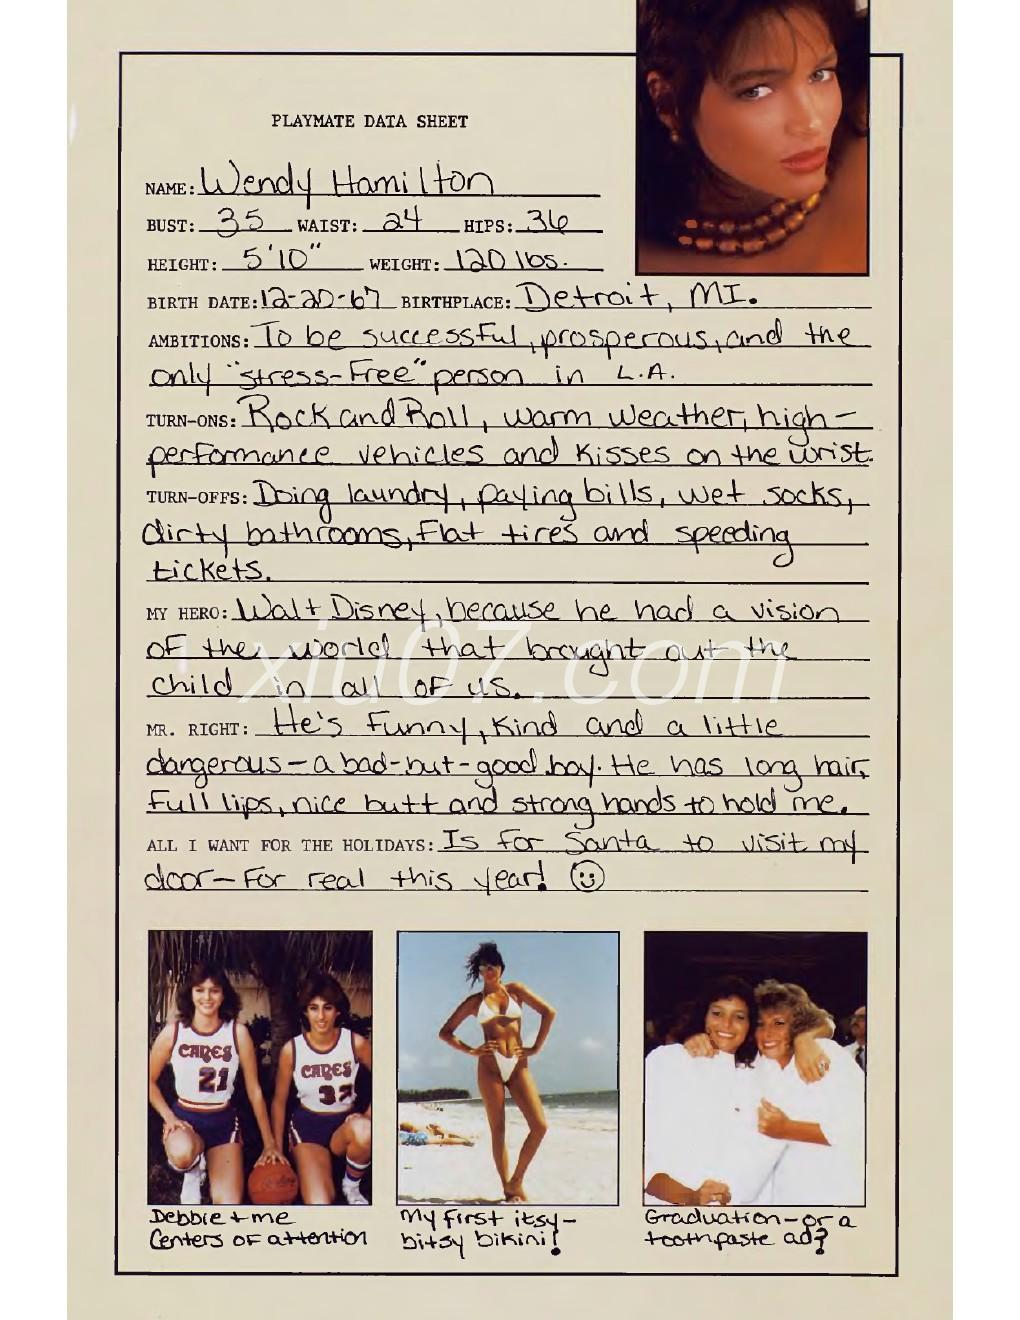 PLAYMATE DATA SHEET
NAME: Wendy Hamilton
BUST: 35 WAIST: 24 HIPS: 36
HEIGHT: 5'10" WEIGHT: 120 lbs.
BIRTH DATE: 12-20-67 BIRTHPLACE: Detroit, MI.
AMBITIONS: To be successful, prosperous, and the
only "stress-free" person in L.A.
TURN-ONS: Rock and Roll, warm weather, high-
performance vehicles and kisses on the wrist.
TURN-OFFS: Doing laundry, paying bills, wet socks,
dirty bathrooms, flat tires and speeding
tickets.
MY HERO: Walt Disney, because he had a vision
of the world that brought out the
child in all of us.
xiu07.com
MR. RIGHT: He's funny, kind and a little
dangerous - a bad-but-good boy. He has long hair,
full lips, nice butt and strong hands to hold me.
ALL I WANT FOR THE HOLIDAYS: Is for Santa to visit my
door - for real this year! ☺
CAGES CAGES
21 32
Debbie + me
Centers of attention
My first itsy-
bitsy bikini!
Graduation - or a
toothpaste ad?